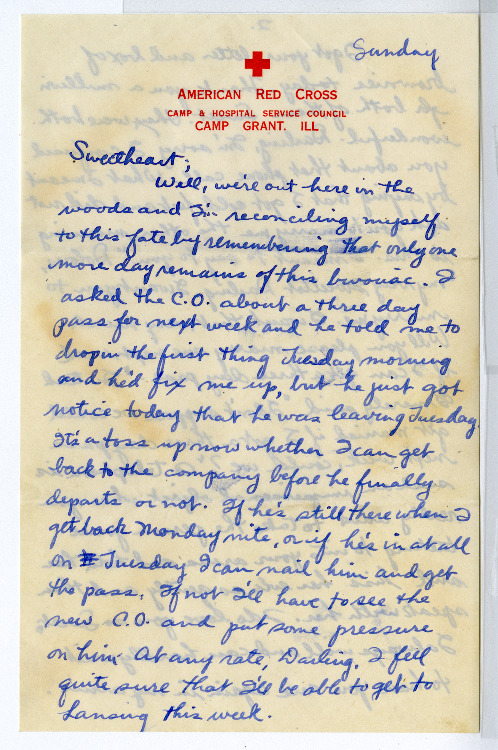 Sunday
AMERICAN RED CROSS
CAMP & HOSPITAL SERVICE COUNCIL
CAMP GRANT. ILL
Sweetheart;
Well, we're out here in the
woods and I'm reconciling myself
to this fate by remembering that only one
more day remains of this bivouac. I
asked the C.O. about a three day
pass for next week and he told me to
drop in the first thing Tuesday morning
and he'd fix me up, but he just got
notice today that he was leaving Tuesday.
It's a toss up now whether I can get
back to the company before he finally
departs or not. If he's still there when I
get back Monday nite, or if he's in at all
on Tuesday I can nail him and get
the pass. If not I'll have to see the
new C.O. and put some pressure
on him. At any rate, Darling, I fell
quite sure that I'll be able to get to
Lansing this week.